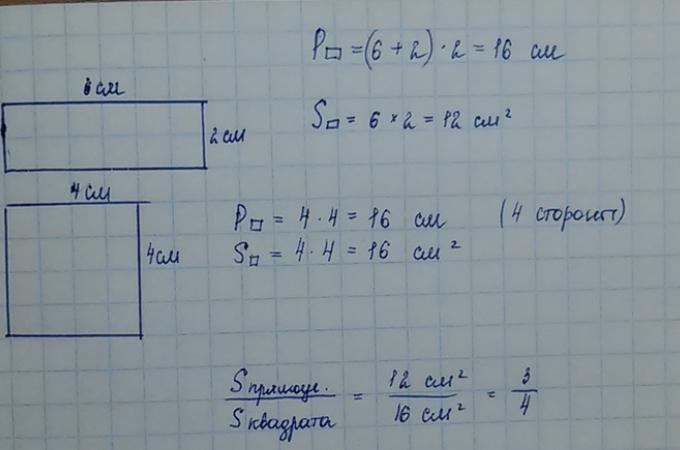 P▭ = (6 + 2) · 2 = 16 см
6 см
2 см
S▭ = 6 × 2 = 12 см²
4 см
4 см
P□ = 4 · 4 = 16 см (4 стороны)
S□ = 4 · 4 = 16 см²
S прямоуг. / S квадрата = 12 см² / 16 см² = 3 / 4